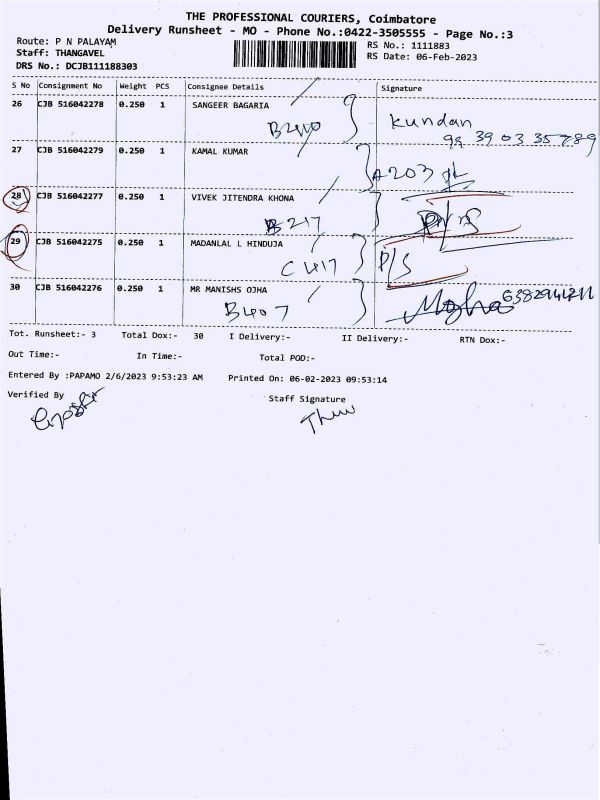 THE PROFESSIONAL COURIERS, Coimbatore
Delivery Runsheet - MO - Phone No.:0422-3505555 - Page No.:3
Route: P N PALAYAM
RS No.: 1111883
Staff: THANGAVEL
RS Date: 06-Feb-2023
DRS No.: DCJB111188303
S No Consignment No Weight PCS Consignee Details Signature
26 CJB 516042278 0.250 1 SANGEER BAGARIA
kundan
27 CJB 516042279 0.250 1 KAMAL KUMAR
A203
28 CJB 516042277 0.250 1 VIVEK JITENDRA KHONA
B217
29 CJB 516042275 0.250 1 MADANLAL L HINDUJA
C417 P/S
30 CJB 516042276 0.250 1 MR MANISHS OJHA
B407
Tot. Runsheet:- 3 Total Dox:- 30 I Delivery:- II Delivery:- RTN Dox:-
Out Time:- In Time:- Total POD:-
Entered By :PAPAMO 2/6/2023 9:53:23 AM Printed On: 06-02-2023 09:53:14
Verified By
Staff Signature